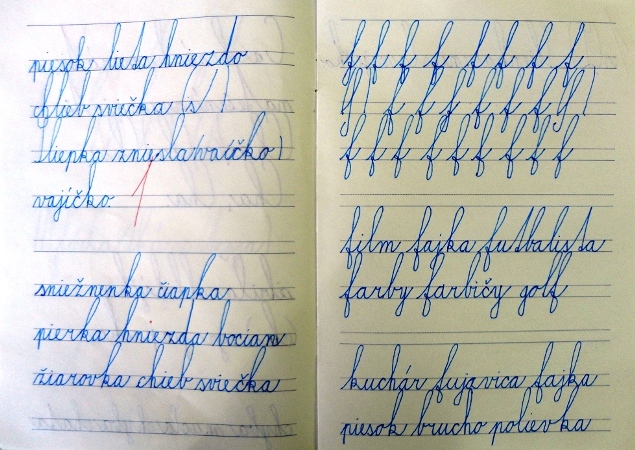 piesok lieta hniezdo
chlieb sviečka (s )
sliepka znies la va (čko)
vajíčko 1
sniežnenka čiapka
pierka hniezda bocian
žiarovka chlieb sviečka
f f f f f f f f
f) f f f f f f)
f f f f f f f f f
film fajka futbalista
farby farbičy golf
kuchár fujavica fajka
piesok brucho polievka